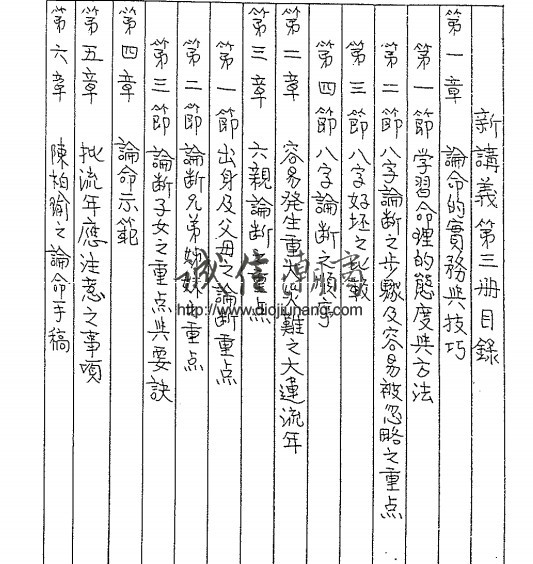 新講義第三册目錄
第一章 論命的實務與技巧
第一節 學習命理的態度與方法
第二節 八字論斷之步驟及容易被忽略之重点
第三節 八字好坏之比較
第四節 八字論斷之順序
第二章 容易發生重大災難之大運流年
第三章 六親論斷之重点
第一節 出身及父母之論斷重点
第二節 論断兄弟姊妹之重点
第三節 論断子女之重点與要訣
第四章 論命示範
第五章 批流年應注意之事項
第六章 陳柏瑜之論命手稿
誠信潮商
http://www.diojiuhang.com